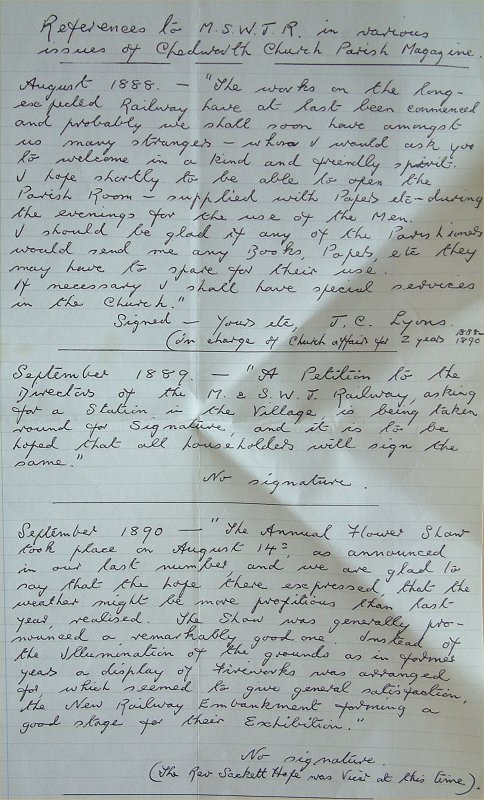 References to M.S.W.J.R. in various
issues of Chedworth Church Parish Magazine.
August 1888. — "The works on the long-
expected Railway have at last been commenced
and probably we shall soon have amongst
us many strangers – whom I would ask you
to welcome in a kind and friendly spirit.
I hope shortly to be able to open the
Parish Room – supplied with Papers etc – during
the evenings for the use of the Men.
I should be glad if any of the Parishioners
would send me any Books, Papers, etc they
may have to spare for their use.
If necessary I shall have special services
in the Church."
Signed – Yours etc, J.C. Lyons.
(In charge of Church affairs for 2 years 1888-1890
September 1889. – "A Petition to the
Directors of the M. & S.W.J. Railway, asking
for a Station in the Village, is being taken
round for Signature, and it is to be
hoped that all householders will sign the
same."
No signature.
September 1890 – "The Annual Flower Show
took place on August 14th, as announced
in our last number, and we are glad to
say that the hope there expressed, that the
weather might be more profitious than last
year, realised. The Show was generally pro-
nounced a remarkably good one. Instead of
the Illumination of the grounds as in former
years a display of Fireworks was arranged
for, which seemed to give general satisfaction,
the New Railway Embankment forming a
good stage for their Exhibition."
No signature.
(The Rev Sackett Hope was Vicar at this time).